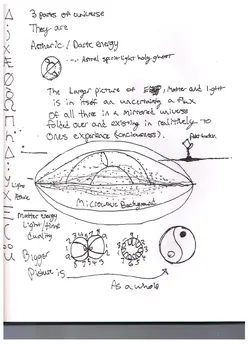 3 parts of universe
They are
Aetharic / Dark energy
Astral spirit light holy ghost
The Larger picture of Matter and light
is in itself an uncertainty a flux
Of all three in a mirrored universe
folded over and existing in realitivety to
Ones experience (conciousness).
Light
Microwave Background
Matter energy
Light/time
duality
Bigger
Picture is
As a whole